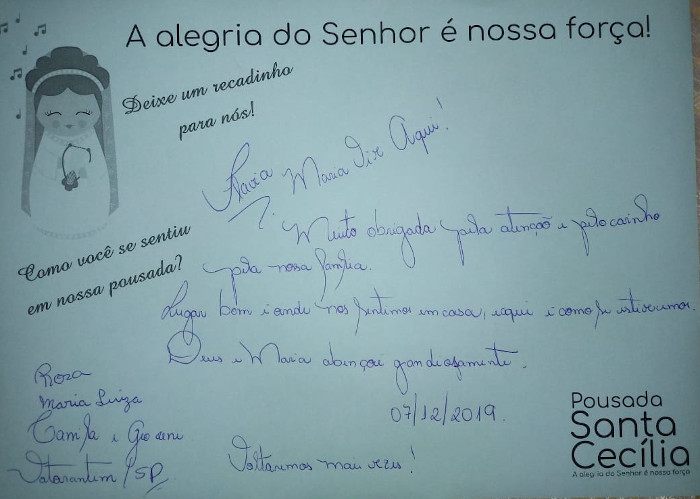 A alegria do Senhor é nossa força!
Deixe um recadinho
para nós!
Flavia Maria Vix Aqui!
Como você se sentiu
em nossa pousada?
Muito obrigada pela atenção e pelo carinho
pela nossa família.
Lugar bom é onde nos sentimos em casa, e aqui é como se estivessemos.
Deus e Maria abençoe grandiosamente.
07/12/2019.
Rosa
Maria Luiza
Camila e
Votorantim/SP
Voltaremos mais vezes!
Pousada
Santa
Cecília
A alegria do Senhor é nossa força